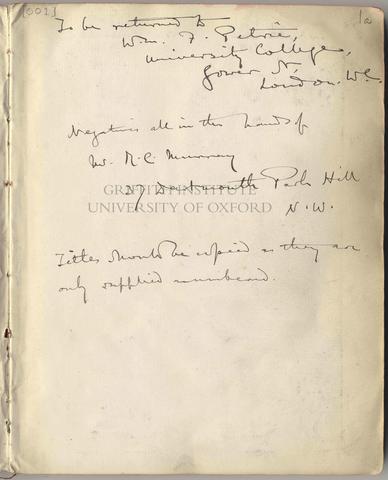 [002]
1a
To be returned to
Wm. F. Petrie,
University College,
Gower St,
London. W.C.
Negatives all in the hands of
Mr. R. C. Murray
27 Dartmouth Park Hill
N. W.
GRIFFITH INSTITUTE
UNIVERSITY OF OXFORD
Titles should be copied as they are
only supplied numbered.